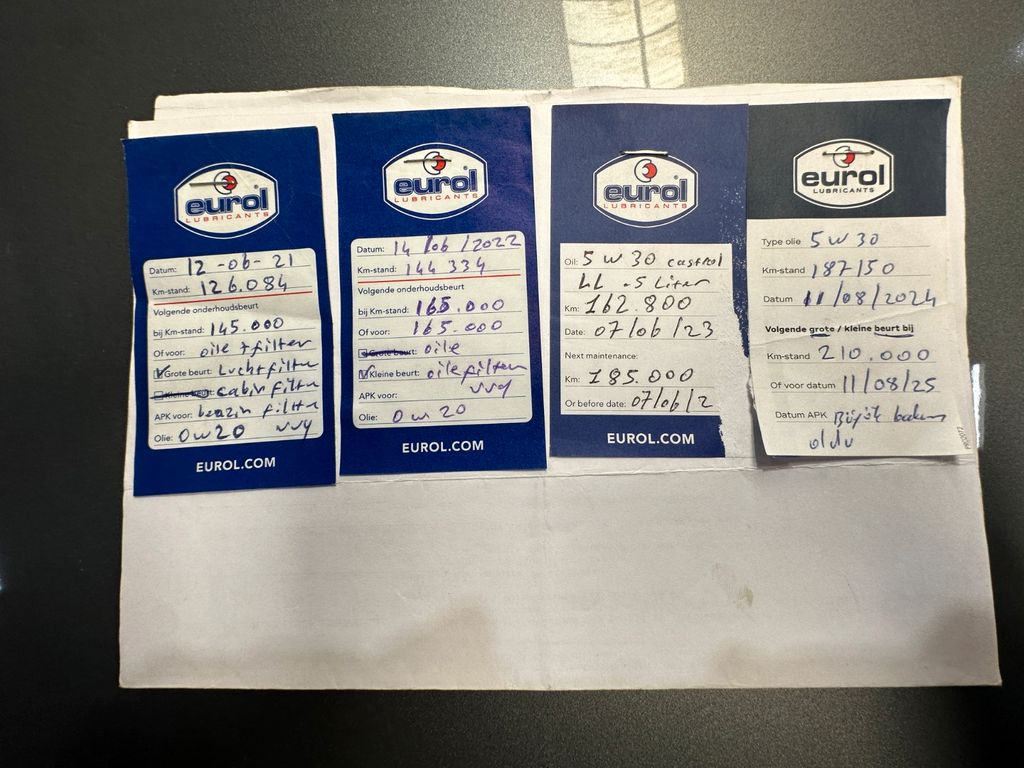 eurol
LUBRICANTS
Datum: 12-06-21
Km-stand: 126.084
Volgende onderhoudsbeurt
bij Km-stand: 145.000
Of voor: oile + filter
Grote beurt: Luchtfilter
Kleine beurt: cabin filter
APK voor: benzin filter
Olie: 0w20 vvy
EUROL.COM
eurol
LUBRICANTS
Datum: 14/06/2022
Km-stand: 144 334
Volgende onderhoudsbeurt
bij Km-stand: 165.000
Of voor: 165.000
Grote beurt: oile
Kleine beurt: oilefilter
APK voor: vvy
Olie: 0w20
EUROL.COM
eurol
LUBRICANTS
Oil: 5w30 castrol
LL -5 Liter
Km: 162.800
Date: 07/06/23
Next maintenance:
Km: 185.000
Or before date: 07/06/2
EUROL.COM
eurol
LUBRICANTS
Type olie 5w30
Km-stand 187150
Datum 11/08/2024
Volgende grote / kleine beurt bij
Km-stand 210.000
Of voor datum 11/08/25
Datum APK Büyük bakım
oldu